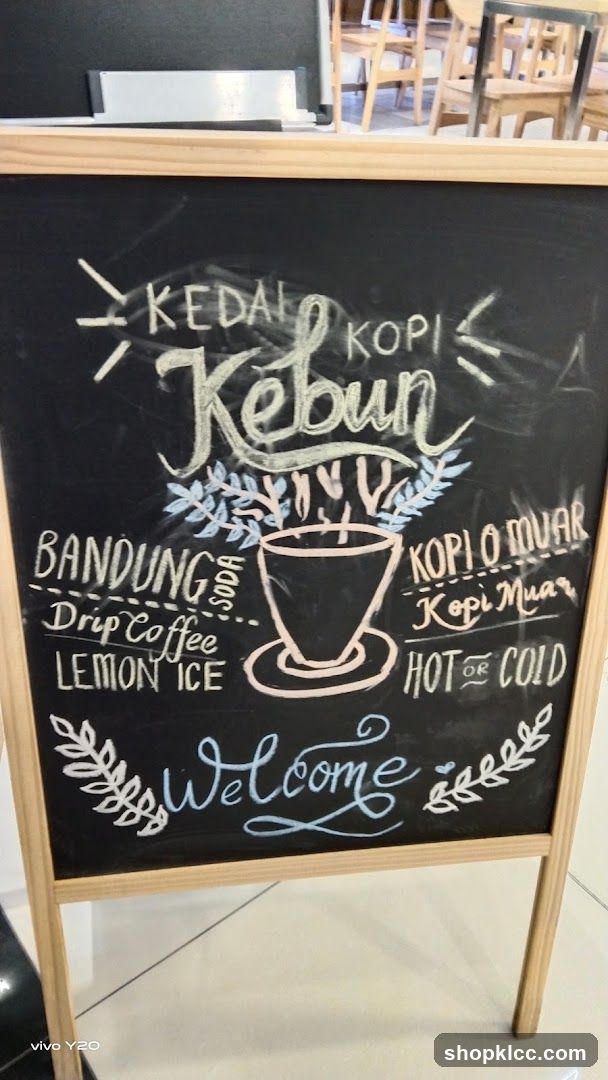 KEDAI KOPI
Kebun
BANDUNG SODA
Drip Coffee
LEMON ICE
KOPI O MUAR
Kopi Muar
HOT OR COLD
Welcome
vivo Y20
shopklcc.com